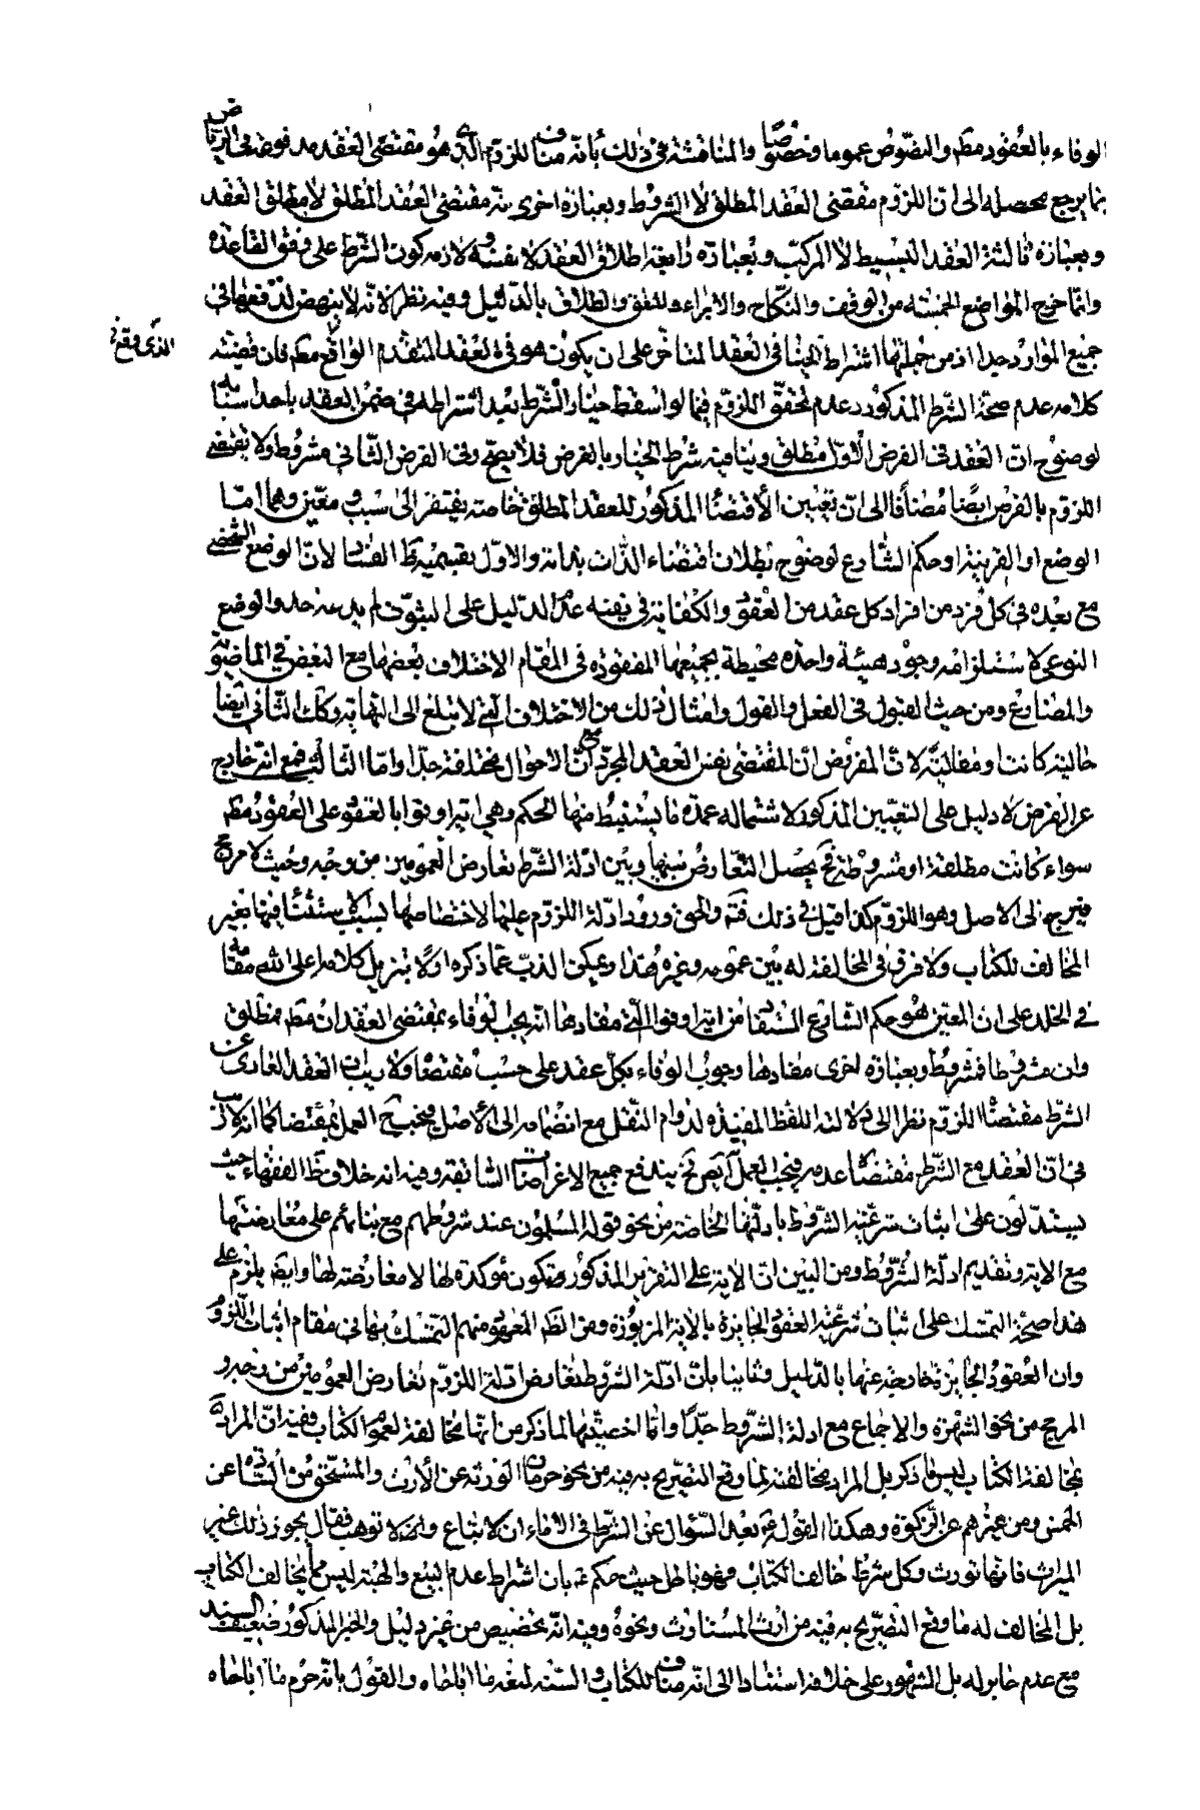 الوفاء بالعقود مطم والنصوص عموما وخصوصا والمناقشة في ذلك بأنه مناف للزوم الذي هو مقتضى العقد مدفوعة في الرياض
بما يرجع محصله الى ان اللزوم مقتضى العقد المطلق لا الشروط وبعبارة اخرى انه مقتضى العقد المطلق لا مطلق العقد
وبعبارة ثالثة العقد البسيط لا المركب وبعبارة رابعة اطلاق العقد لا نفسه ولازمه كون الشرط على وفق القاعدة
وانما خرج المواضع الخمسة من الوقف والنكاح والابراء والعتق والطلاق بالدليل وفيه نظر لانه لا ينهض لدفعها في
جميع الموارد جدا اذ من جملتها اشتراط الخيار في العقد المتاخر على ان يكون هو في العقد المتقدم الواقع مطم فان قضية
الذى وقع فى
كلامه عدم صحة الشرط المذكور وعدم تحقق اللزوم فيما لو اسقط خيار الشرط بعد اشتراطه في ضمن العقد باحد اسبابه
لوضوح ان العقد في الفرض الاول مطلق وينافيه شرط الخيار بالفرض فلا يصح وفى الفرض الثانى مشروط ولا يقتضى
اللزوم بالفرض ايضا مضافا الى ان تعيين الاقتضاء المذكور للعقد المطلق خاصة يفتقر الى سبب معين وهو اما
الوضع او القرينة او حكم الشارع لوضوح بطلان اقتضاء الذات بذاته والاول بقسميه ظ الفساد لان الوضع الشخصى
مع بعده في كل فرد من افراد كل عقد من العقود والكفاية في نفيه عدم الدليل على الثبوت لم يدعه احد والوضع
النوعى لاستلزامه وجود هيئة واحدة محيطة بجميعها المفقودة في المقام لاختلاف بعضها مع البعض في الماضوية
والمضارع ومن حيث القبول في الفعل والقول وامثال ذلك من الاختلاف التي لا تبلغ الى النهاية وكك الثانى ايضا
حالية كانت او مقالية لان المفروض ان المقتضى نفس العقد المجرد مع ان الاحوال مختلفة جدا واما الثالث فمع انه خارج
عن الفرض لا دليل على التعيين المذكور لاشتماله عمدة ما يستنبط منها الحكم وهي اية اوفوا بالعقود على العقود مطم
سواء كانت مطلقة او مشروطة فح يحصل التعارض بينها وبين ادلة الشرط تعارض العمومين من وجه وحيث لا مرجح
فيرجع الى الاصل وهو اللزوم كذا قيل في ذلك فتم والحق ورود ادلة اللزوم عليها لاختصاصها بسبب الاستثناء فيها بغير
المخالف للكتاب ولا فرق في المخالفة له بين عمومه وغيره هذا ويمكن الذب عما ذكره اولا بتنزيل كلامه اعلى الله مقامه
في الخلد على ان المعين هو حكم الشارع المستفاد من اية اوفوا التي مفادها انه يجب الوفاء بمقتضى العقد ان مطم فمطلق
وان مشروطا فمشروط وبعبارة اخرى مفادها وجوب الوفاء بكل عقد على حسب مقتضاه ولا ريب ان العقد العارى عن
الشرط مقتضاه اللزوم نظرا الى دلالة اللفظ المفيدة لدوام النقل مع انضمامه الى الاصل فيجب ح العمل بمقتضاه كما انه لا ريب
فى ان العقد مع الشرط مقتضاه عدمه فيجب العمل ايض فح يندفع جميع الاعتراضات السابقة وفيه انه خلاف ظ الفقهاء حيث
يستدلون على اثبات شرعية الشروط بادلتها الخاصة من نحو قوله المسلمون عند شروطهم مع بنائهم على معارضتها
مع الاية وتقديم ادلة الشروط ومن البين ان الاية على التقرير المذكور وتكون مؤكدة لها لا معارضة لها وايض يلزم على
هذا صحة التمسك على اثبات شرعية العقود الجايزة بالاية المزبورة ومن الظم المعهود منهم التمسك بها في مقام اثبات اللزوم
وان العقود الجايزة خارجة عنها بالدليل وثانيا بان ادلة الشروط تعارض ادلة اللزوم تعارض العمومين من وجه و
المرجح من نحو الشهرة والاجماع مع ادلة الشروط جدا واما ادعيتها لما ذكر من انها مخالفة لعموم الكتاب ففيه ان المراد
بمخالفة الكتاب ليس ما ذكر بل المراد مخالفته لما وقع التصريح به فيه من نحو حرمان الورثة عن الارث والمستحق من السادة عن
الخمس ومن غيرهم عن الزكوة وهكذا لقوله عم بعد السؤال عن الشرط في الاماء ان لا تباع ولا توهب فقال يجوز ذلك غير
الميراث فانها تورث وكل شرط خالف الكتاب فهو باطل حيث حكم عم بان اشتراط عدم البيع والهبة ليس مما يخالف الكتاب
بل المخالف له ما وقع التصريح به فيه من ارث المستاوث ونحوه وفيه انه تخصيص من غير دليل والخبر المذكور ضعيف السند
مع عدم جابر له بل المشهور على خلافه استنادا الى انه مناف للكتاب والسنة لمنعه ما اباحاه والقول بانه حرم ما اباحاه